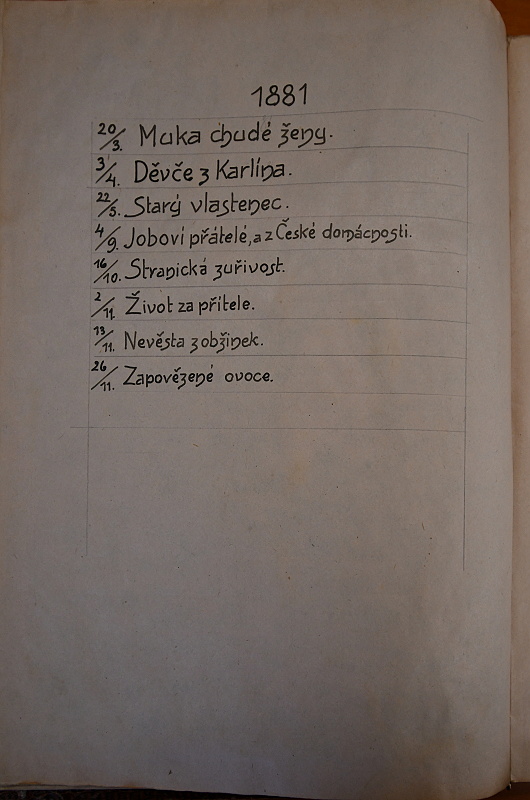 1881
20/3. Muka chudé ženy.
3/4. Děvče z Karlína.
22/5. Starý vlastenec.
4/9. Joboví přátelé, a z České domácnosti.
16/10. Stranická zuřivost.
2/11. Život za přítele.
13/11. Nevěsta z obžinek.
26/11. Zapovězené ovoce.